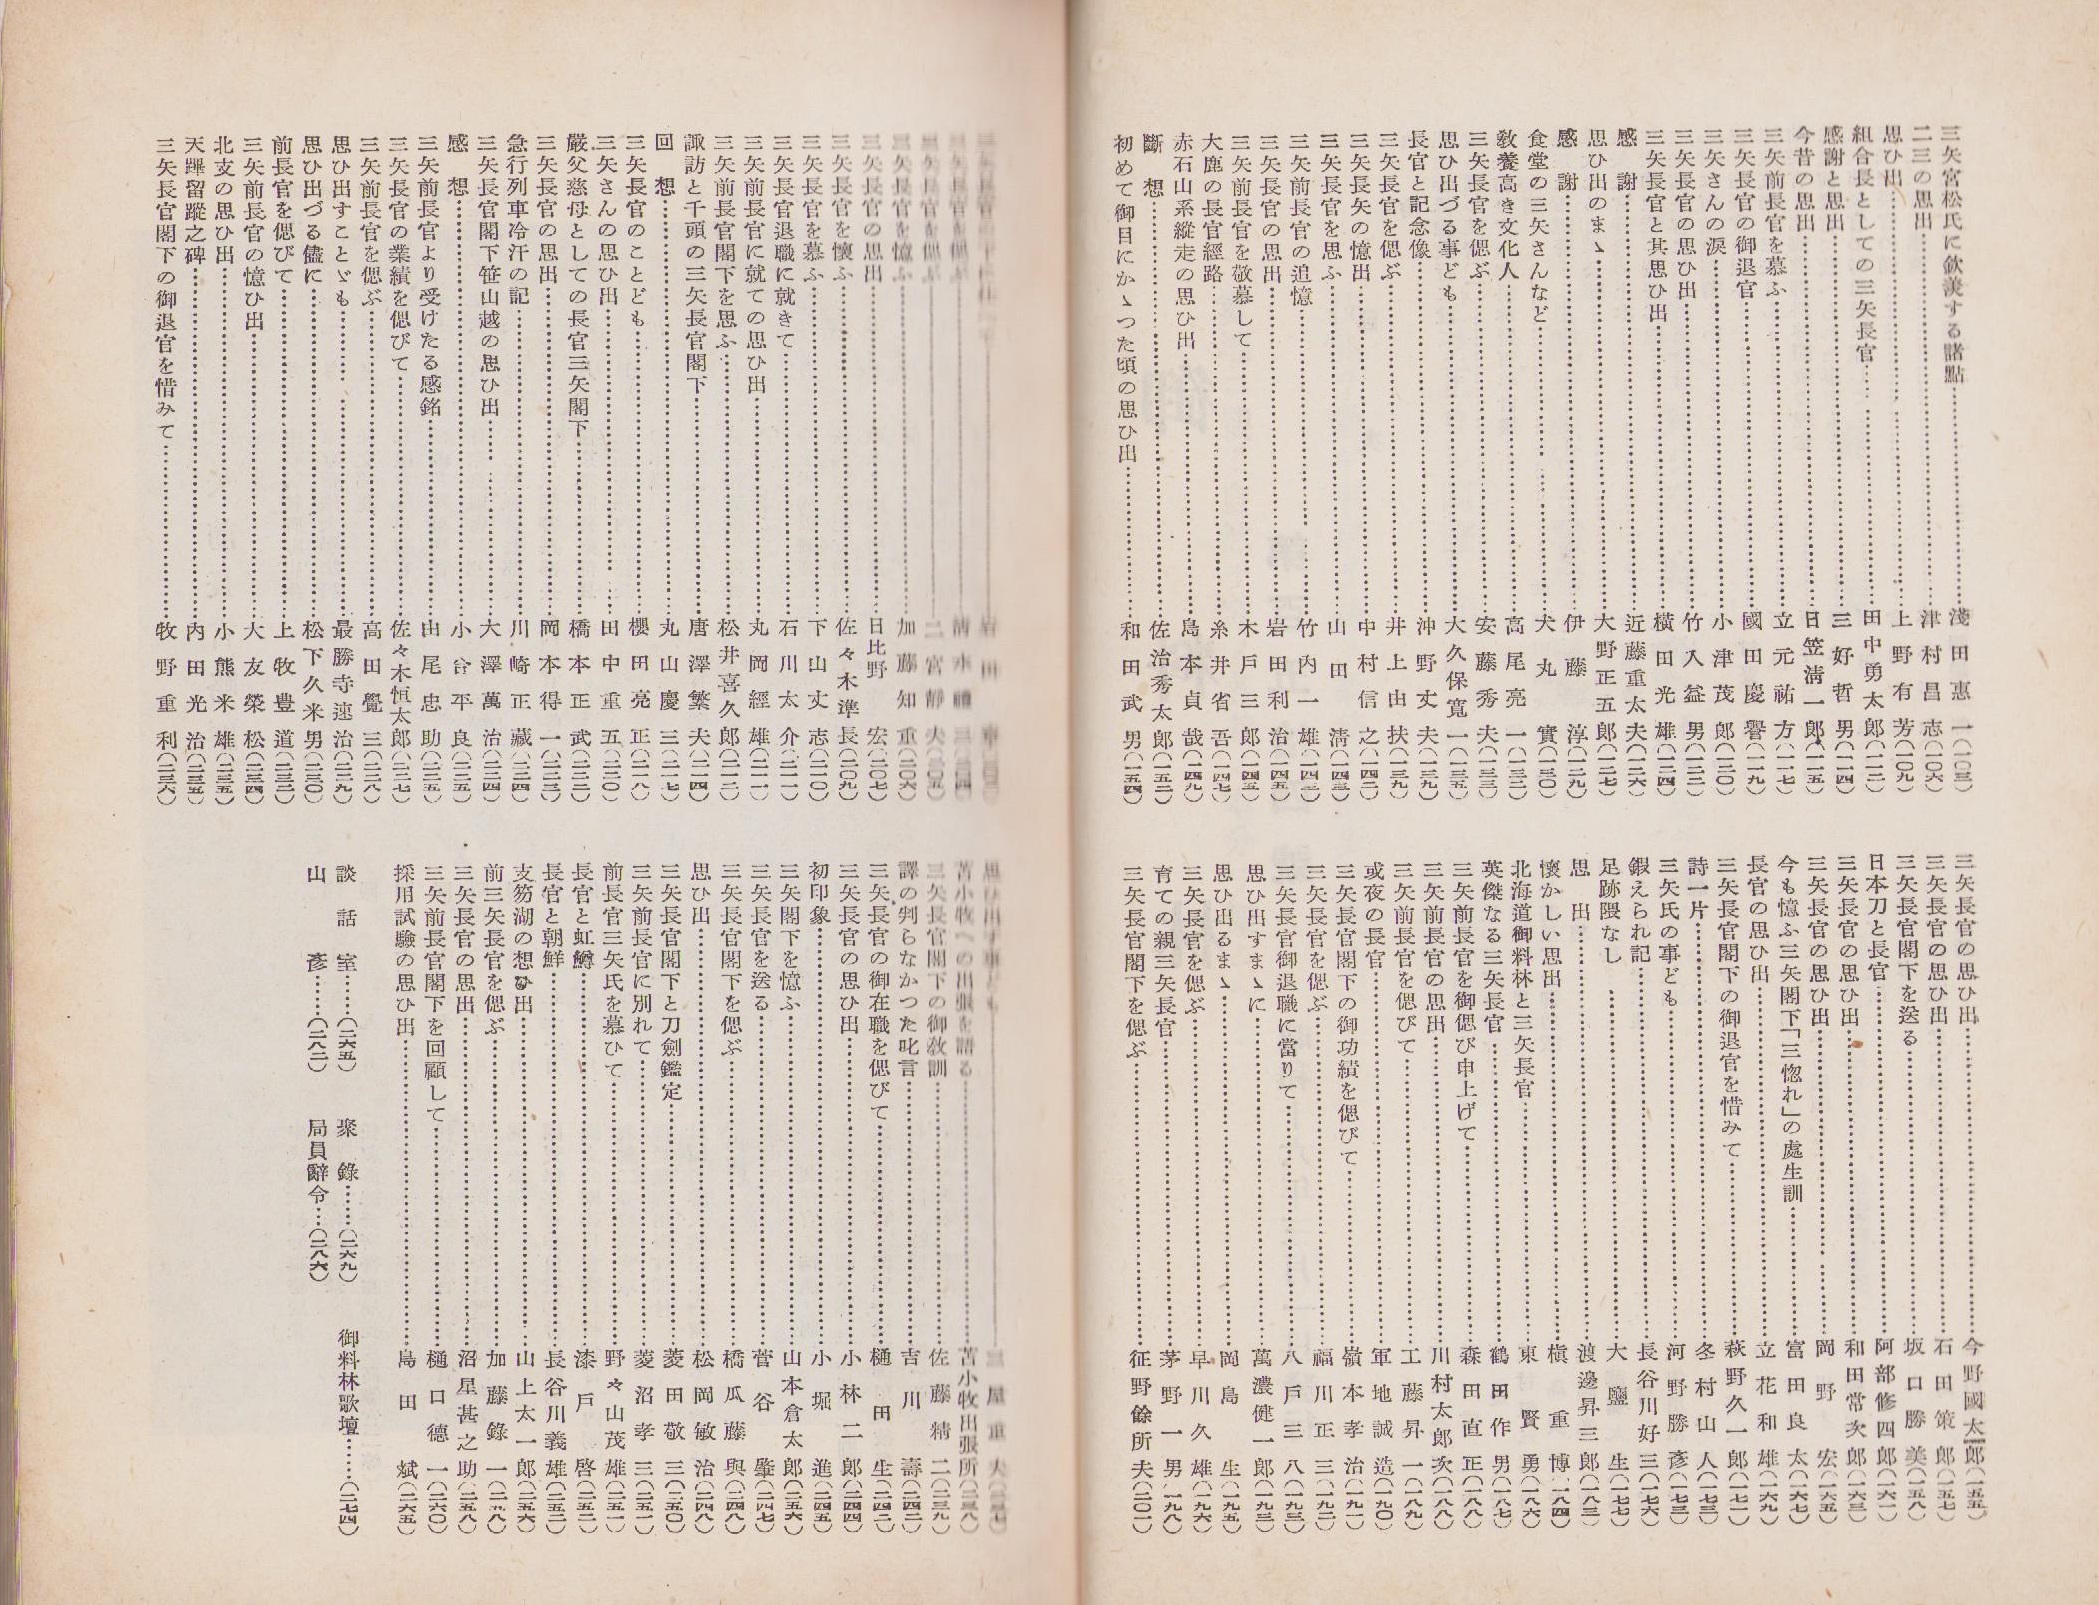 三矢宮松氏に欽羨する諸點……淺田惠一(一〇三)
二三の思出……津村昌志(一〇六)
思ひ出……上野有芳(一〇九)
組合長としての三矢長官……田中勇太郎(一一二)
感謝と思出……三好哲男(一一四)
今昔の思出……日笠淸一郎(一一五)
三矢前長官を慕ふ……立元祐方(一一七)
三矢長官の御退官……國田慶譽(一一九)
三矢さんの淚……小津茂郎(一二〇)
三矢長官の思ひ出……竹入益男(一二二)
三矢長官と其思ひ出……橫田光雄(一二四)
感謝……近藤重太夫(一二六)
思ひ出のまゝ……大野正五郎(一二七)
感謝……伊藤淳(一二九)
食堂の三矢さんなど……犬丸實(一三〇)
敎養高き文化人……高尾亮一(一三二)
三矢長官を偲ぶ……安藤秀夫(一三三)
思ひ出づる事ども……大久保寬一(一三五)
長官と記念像……沖野丈夫(一三九)
三矢長官を偲ぶ……井上由扶(一三九)
三矢長矢の憶出……中村信之(一四二)
三矢長官を思ふ……山田淸(一四三)
三矢前長官の追憶……竹内一雄(一四三)
三矢長官の思出……岩田利治(一四五)
三矢前長官を敬慕して……木戸三郎(一四五)
大鹿の長官經路……糸井省吾(一四七)
赤石山系縱走の思ひ出……島本貞哉(一四九)
斷想……佐治秀太郎(一五二)
初めて御目にかゝつた頃の思ひ出……和田武男(一五四)
三矢長官の思ひ出……今野國太郎(一五五)
三矢長官の思ひ出……石田策郎(一五七)
三矢長官閣下を送る……坂口勝美(一五八)
日本刀と長官……阿部修四郎(一六一)
三矢長官の思ひ出……和田常次郎(一六三)
三矢長官の思ひ出……岡野宏(一六五)
今も憶ふ三矢閣下「三惚れ」の處生訓……富田良太(一六七)
長官の思ひ出……立花和雄(一六九)
三矢長官閣下の御退官を惜みて……萩野久一郎(一七一)
詩一片……冬村山人(一七三)
三矢氏の事ども……河野勝彥(一七三)
鍛えられ記……長谷川好三(一七六)
足跡隈なし……大鹽生(一七七)
思出……渡邊昇三郎(一八三)
懷かしい思出……槇重博(一八四)
北海道御料林と三矢長官……東賢勇(一八六)
英傑なる三矢長官……鶴田作男(一八七)
三矢前長官を御偲び申上げて……森田直正(一八八)
三矢前長官の思出……川村太郎次(一八八)
三矢前長官を偲びて……工藤昇一(一八九)
或夜の長官……軍地誠造(一九〇)
三矢長官閣下の御功績を偲びて……嶺本孝治(一九一)
三矢長官を偲ぶ……福川正三(一九二)
三矢長官御退職に當りて……八戸三八(一九三)
思ひ出すまゝに……萬濃健一郎(一九三)
思ひ出るまゝ……岡島生(一九五)
三矢長官を偲ぶ……早川久雄(一九六)
育ての親三矢長官……茅野一男(一九八)
三矢長官閣下を偲ぶ……征野餘所夫(二〇一)
三矢長官を偲ぶ……二宮靜夫(二〇五)
三矢長官を憶ふ……加藤知重(二〇六)
三矢長官の思出……日比野宏(二〇七)
三矢長官を懷ふ……佐々木準長(二〇九)
三矢長官を慕ふ……下山丈志(二一〇)
三矢長官退職に就きて……石川太介(二一一)
三矢前長官に就ての思ひ出……丸岡經雄(二一一)
三矢前長官閣下を思ふ……松井喜久郎(二一二)
諏訪と千頭の三矢長官閣下……唐澤繁夫(二一四)
回想……丸山慶三(二一七)
三矢長官のことども……櫻田亮正(二一八)
三矢さんの思ひ出……田中重五(二二〇)
嚴父慈母としての長官三矢閣下……橋本正武(二二二)
三矢長官の思出……岡本得一(二二三)
急行列車冷汗の記……川崎正藏(二二四)
三矢長官閣下笹山越の思ひ出……大澤萬治(二二四)
感想……小谷平良(二二五)
三矢前長官より受けたる感銘……由尾忠助(二二五)
三矢長官の業績を偲びて……佐々木恒太郎(二二七)
三矢前長官を偲ぶ……高田覺三(二二八)
思ひ出すことゞも……最勝寺速治(二二九)
思ひ出づる儘に……松下久米男(二三〇)
前長官を偲びて……上牧豊道(二三二)
三矢前長官の憶ひ出……大友榮松(二三四)
北支の思ひ出……小熊米雄(二三五)
天蹕留蹤之碑……内田光治(二三五)
三矢長官閣下の御退官を惜みて……牧野重利(二三六)
思ひ出す事ども……三屋重夫(二三七)
苫小牧への出張を語る……苫小牧出張所(二三八)
三矢長官閣下の御敎訓……佐藤精二(二三九)
譯の判らなかつた叱言……吉川壽(二四二)
三矢長官の御在職を偲びて……樋田生(二四二)
三矢長官の思ひ出……小林二郎(二四四)
初印象……小堀進(二四五)
三矢閣下を憶ふ……山本倉太郎(二四六)
三矢長官を送る……菅谷肇(二四七)
三矢長官閣下を偲ぶ……橋瓜藤與(二四八)
思ひ出……松岡敏治(二四八)
三矢長官閣下と刀劍鑑定……菱田敬三(二五〇)
三矢前長官に別れて……菱沼孝三(二五一)
前長官三矢氏を慕ひて……野々山茂雄(二五一)
長官と虹鱒……漆戸啓(二五二)
長官と朝鮮……長谷川義雄(二五二)
支笏湖の想ひ出……山上太一郎(二五六)
前三矢長官を偲ぶ……加藤錄一
三矢長官の思出……沼星甚之助(二五八)
三矢前長官閣下を回顧して……樋口德一(二六〇)
採用試驗の思ひ出……島田斌(二六五)
談話室……(二六五) 聚錄……(二六九) 御料林歌壇……(二七四)
山彥……(二八二) 局員辭令…(二八六)